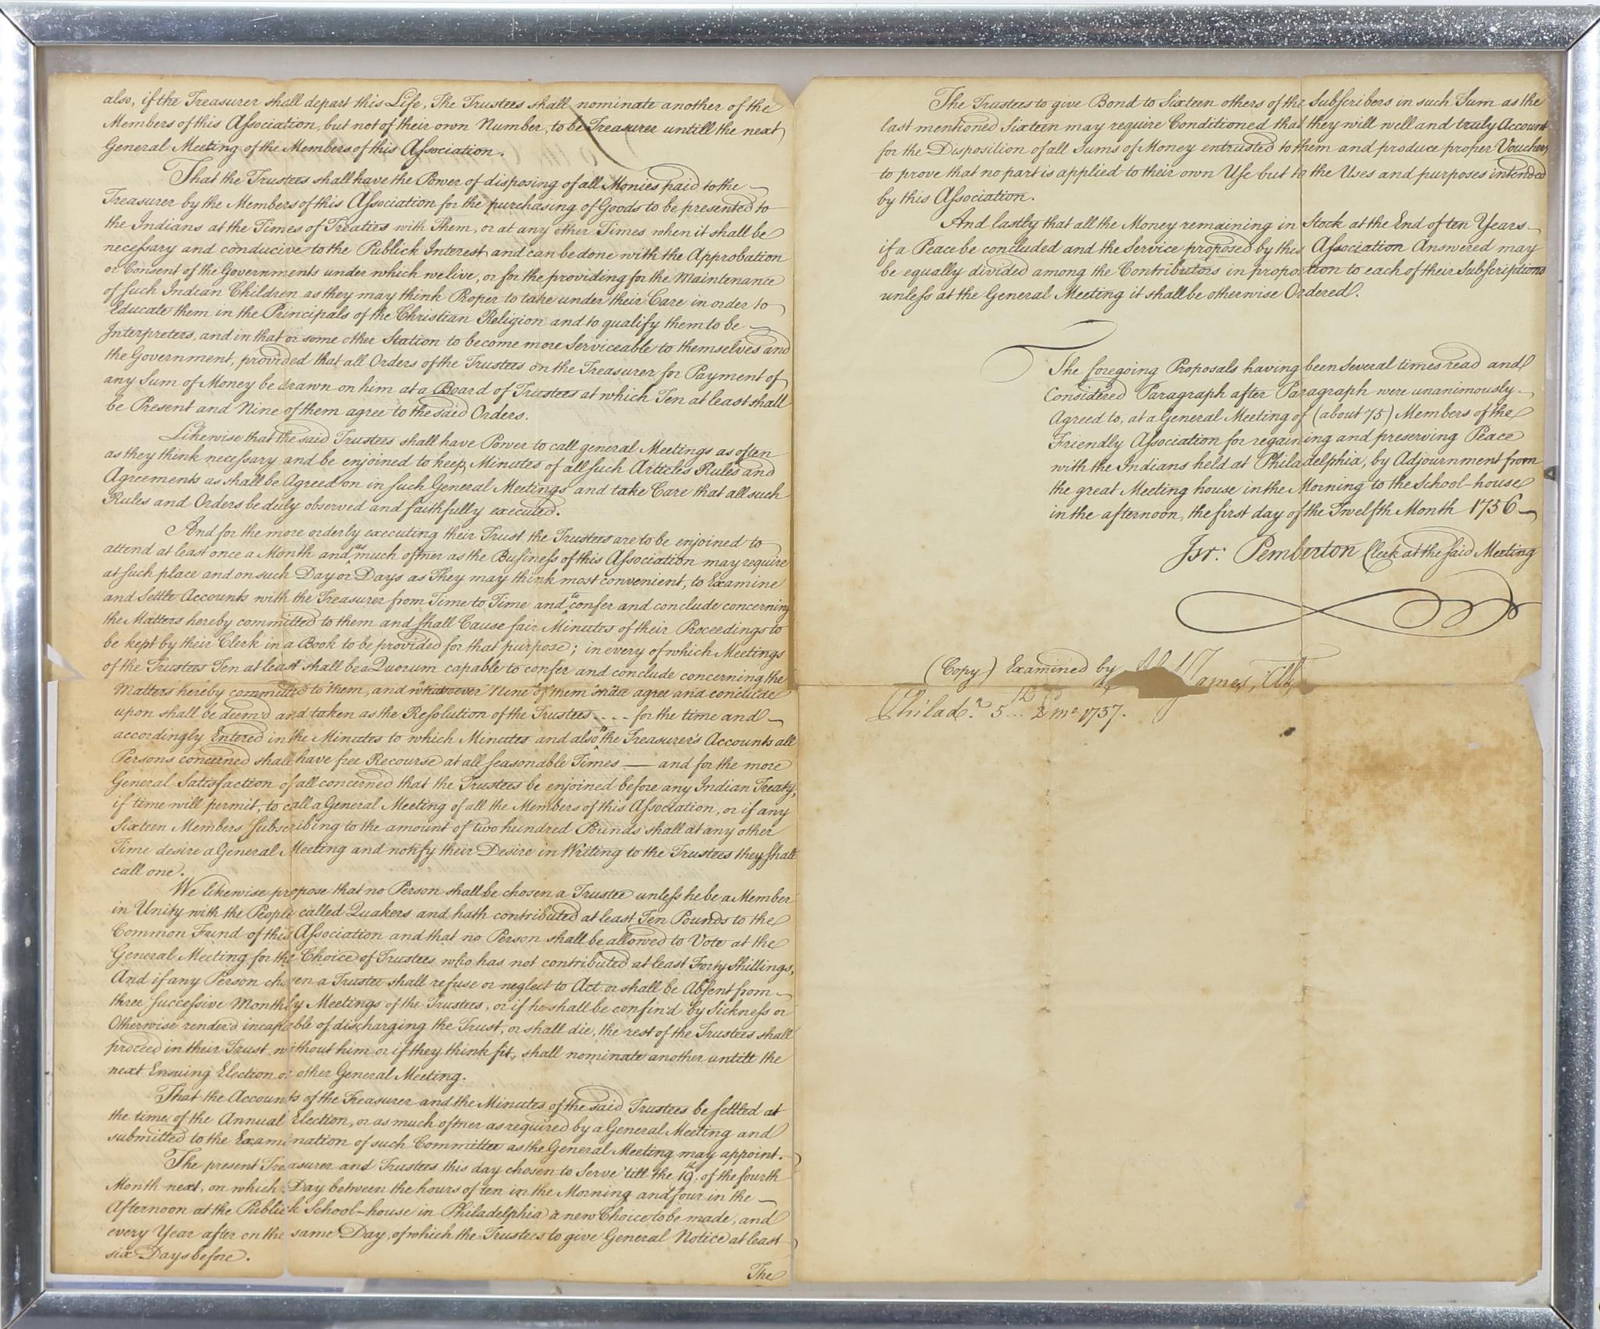 also, if the Treasurer shall depart this Life, The Trustees shall nominate another of the
Members of this Association, but not of their own Number, to be Treasurer untill the next
General Meeting of the Members of this Association.
That the Trustees shall have the Power of disposing of all Monies paid to the
Treasurer by the Members of this Association for the purchasing of Goods to be presented to
the Indians at the Times of Treaties with Them, or at any other Times when it shall be
necessary and conducive to the Publick Interest and can be done with the Approbation
or Consent of the Governments under which we live, or for the providing for the Maintenance
of such Indian Children as they may think Proper to take under their Care in order to
Educate them in the Principals of the Christian Religion and to qualify them to be
Interpreters, and in that or some other Station to become more Serviceable to themselves and
the Government, provided that all Orders of the Trustees on the Treasurer for Payment of
any Sum of Money be drawn on him at a Board of Trustees at which Ten at least shall
be Present and Nine of them agree to the said Orders.
Likewise that the said Trustees shall have Power to call general Meetings as often
as they think necessary and be enjoined to keep Minutes of all such Articles Rules and
Agreements as shall be Agreed on in such General Meetings and take Care that all such
Rules and Orders be duly observed and faithfully executed.
And for the more orderly executing their Trust the Trustees are to be enjoined to
attend at least once a Month and as much oftner as the Business of this Association may require
at such place and on such Day or Days as They may think most convenient, to Examine
and Settle Accounts with the Treasurer from Time to Time and to confer and conclude concerning
the Matters hereby committed to them and shall Cause fair Minutes of their Proceedings to
be kept by their Clerk in a Book to be provided for that purpose; in every of which Meetings
of the Trustees Ten at least shall be a Quorum capable to confer and conclude concerning the
Matters hereby committed to them, and whatsoever Nine of them shall agree and conclude
upon shall be deem'd and taken as the Resolution of the Trustees .... for the time and
accordingly Entered in the Minutes to which Minutes and also to the Treasurer's Accounts all
Persons concerned shall have free Recourse at all seasonable Times — and for the more
General Satisfaction of all concerned that the Trustees be enjoined before any Indian Treaty,
if time will permit, to call a General Meeting of all the Members of this Association, or if any
Sixteen Members Subscribing to the amount of two hundred Pounds shall at any other
Time desire a General Meeting and notify their Desire in Writing to the Trustees they shall
call one.
We likewise propose that no Person shall be chosen a Trustee unless he be a Member
in Unity with the People called Quakers and hath contributed at least Ten Pounds to the
Common Fund of this Association and that no Person shall be allowed to Vote at the
General Meeting for the Choice of Trustees who has not contributed at least Forty Shillings,
And if any Person chosen a Trustee shall refuse or neglect to Act or shall be Absent from
three successive Monthly Meetings of the Trustees, or if he shall be confin'd by Sickness or
Otherwise render'd incapable of discharging the Trust, or shall die, the rest of the Trustees shall
proceed in their Trust without him or if they think fit, shall nominate another untill the
next Ensuing Election or other General Meeting.
That the Accounts of the Treasurer and the Minutes of the said Trustees be settled at
the time of the Annual Election, or as much oftner as required by a General Meeting and
submitted to the Examination of such Committee as the General Meeting may appoint.
The present Treasurer and Trustees this day chosen to Serve 'till the 19th of the fourth
Month next, on which Day between the hours of ten in the Morning and four in the
Afternoon at the Publick School-house in Philadelphia a new Choice to be made, and
every Year after on the same Day, of which the Trustees to give General Notice at least
six Days before.
The
The Trustees to give Bond to Sixteen others of the Subscribers in such Sum as the
last mentioned Sixteen may require Conditioned that they will well and truly Account
for the Disposition of all Sums of Money entrusted to them and produce proper Vouchers
to prove that no part is applied to their own Use but to the Uses and purposes intended
by this Association.
And lastly that all the Money remaining in Stock at the End of ten Years
if a Peace be concluded and the Service proposed by this Association Answered may
be equally divided among the Contributors in proportion to each of their Subscriptions
unless at the General Meeting it shall be otherwise Ordered.
The foregoing Proposals having been several times read and
Considered Paragraph after Paragraph were unanimously
Agreed to, at a General Meeting of (about 75) Members of the
Friendly Association for regaining and preserving Peace
with the Indians held at Philadelphia, by Adjournment from
the great Meeting house in the Morning to the School-house
in the afternoon, the first day of the Twelfth Month 1756
Isr: Pemberton Clerk at the said Meeting
(Copy) Examined by James,
Philada. 5th 2mo 1757.